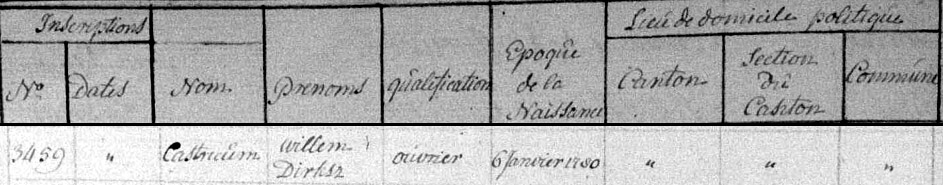 Inscriptions Lieu de domicile politique
No Dates Nom Prenoms qualification Epoque de la Naissance Canton Section du Canton Commune
3459 " Castricum Willem Dirksz ouvrier 6 Janvier 1780 " " "